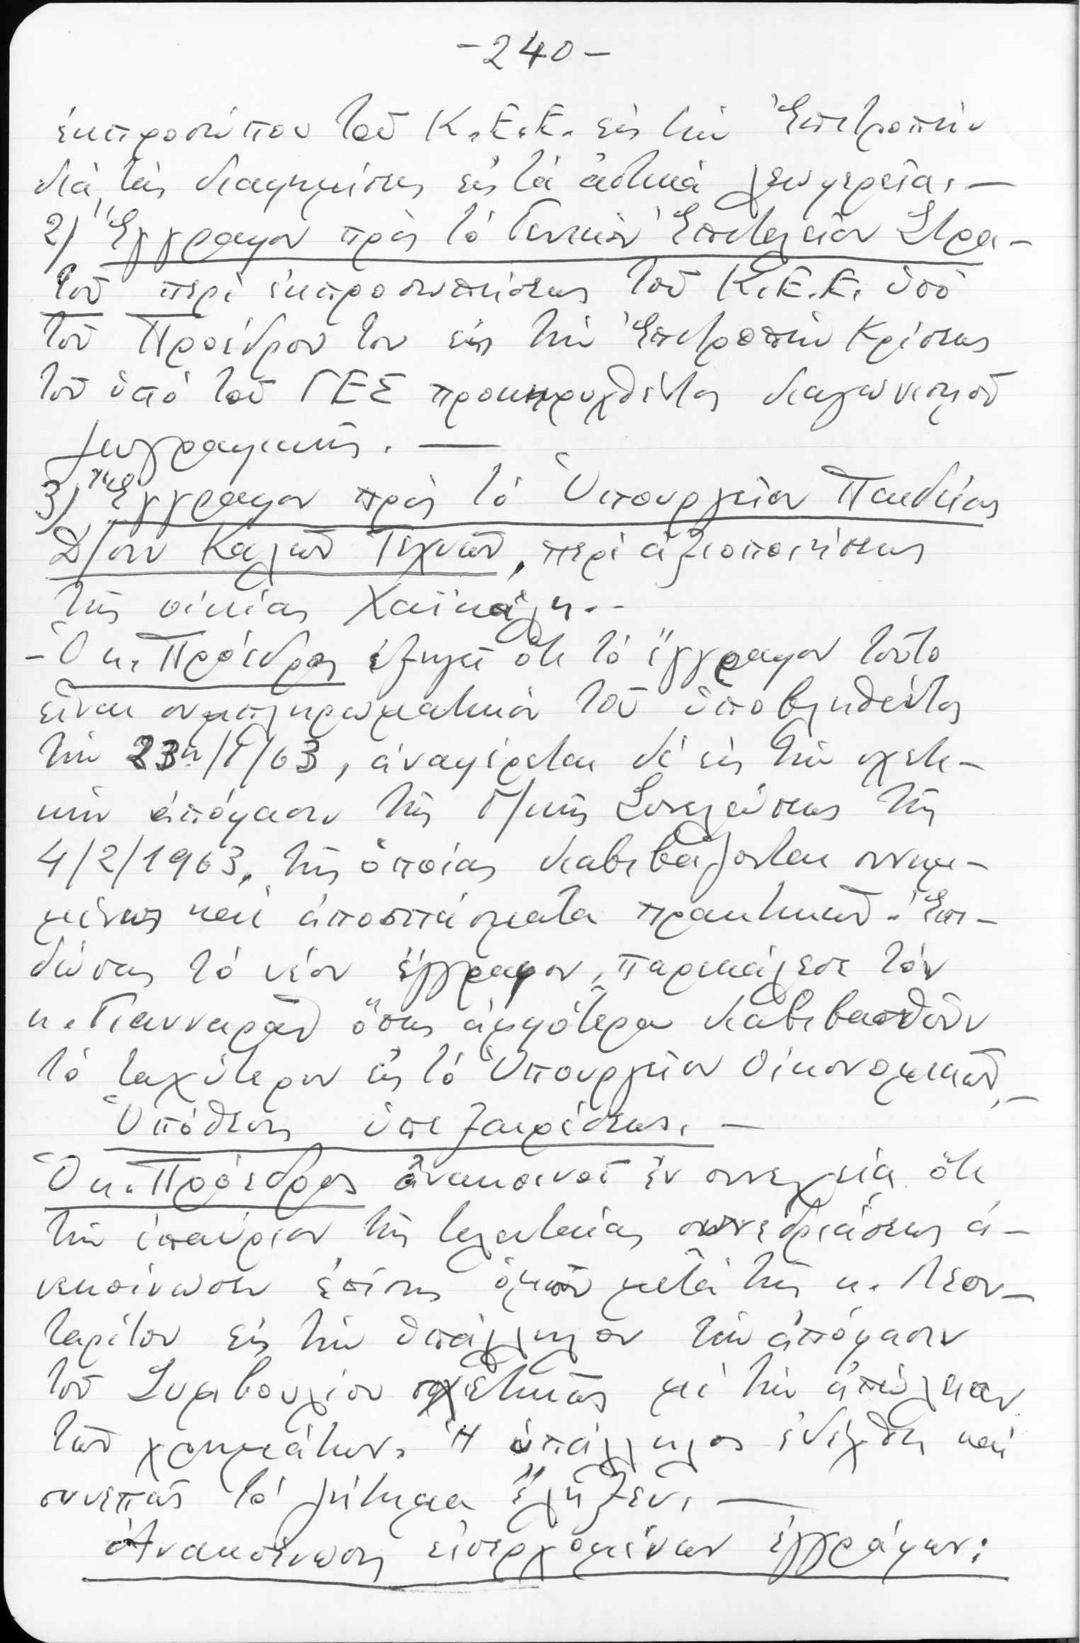 -240-
ἐκπροσώπου τοῦ Κ.Ε.Ε. εἰς τήν Ἐπιτροπήν
διά τάς διαφημίσεις εἰς τά ἀστικά λεωφορεῖα.—
2) Ἔγγραφον πρός τό Γενικόν Ἐπιτελεῖον Στρα-
τοῦ περί ἐκπροσωπήσεως τοῦ Κ.Ε.Ε. ὑπό
τοῦ Προέδρου του εἰς τήν Ἐπιτροπήν Κρίσεως
τοῦ ὑπό τοῦ ΓΕΣ προκηρυχθέντος διαγωνισμοῦ
ζωγραφικῆς. —
3) Ἔγγραφον πρός τό Ὑπουργεῖον Παιδείας
Δ/σιν Καλῶν Τεχνῶν, περί ἀξιοποιήσεως
τῆς οἰκίας Χαϊκάλη.-
- Ὁ κ. Πρόεδρος ἐξηγεῖ ὅτι τό ἔγγραφον τοῦτο
εἶναι συμπληρωματικόν τοῦ ὑποβληθέντος
τήν 23η/1/63, ἀναφέρεται δέ εἰς τήν σχετι-
κήν ἀπόφασιν τῆς Γ/κῆς Συνελεύσεως τῆς
4/2/1963, τῆς ὁποίας διαβιβάζονται συνημ-
μένως καί ἀποσπάσματα πρακτικῶν. Ἐπι-
δώσας τό νέον ἔγγραφον, παρεκάλεσε τόν
κ. Γιανναρᾶν ὅπως ἀμφότερα διαβιβασθοῦν
τό ταχύτερον εἰς τό Ὑπουργεῖον Οἰκονομικῶν.—
Ὑπόθεσις ὑπεξαιρέσεως. —
Ὁ κ. Πρόεδρος ἀνακοινοῖ ἐν συνεχείᾳ ὅτι
τήν ἐπαύριον τῆς τελευταίας συνεδριάσεως ἀ-
νεκοίνωσεν ἐπίσης ὁμοῦ μετά τῆς κ. Λεον-
ταρίτου εἰς τήν ὑπάλληλον τήν ἀπόφασιν
τοῦ Συμβουλίου σχετικῶς μέ τήν ἀπώλειαν
τῶν χρημάτων. Ἡ ὑπάλληλος ἐδέχθη καί
συνεπῶς τό ζήτημα ἔληξεν. —
Ἀνακοίνωσις εἰσερχομένων ἐγγράφων: